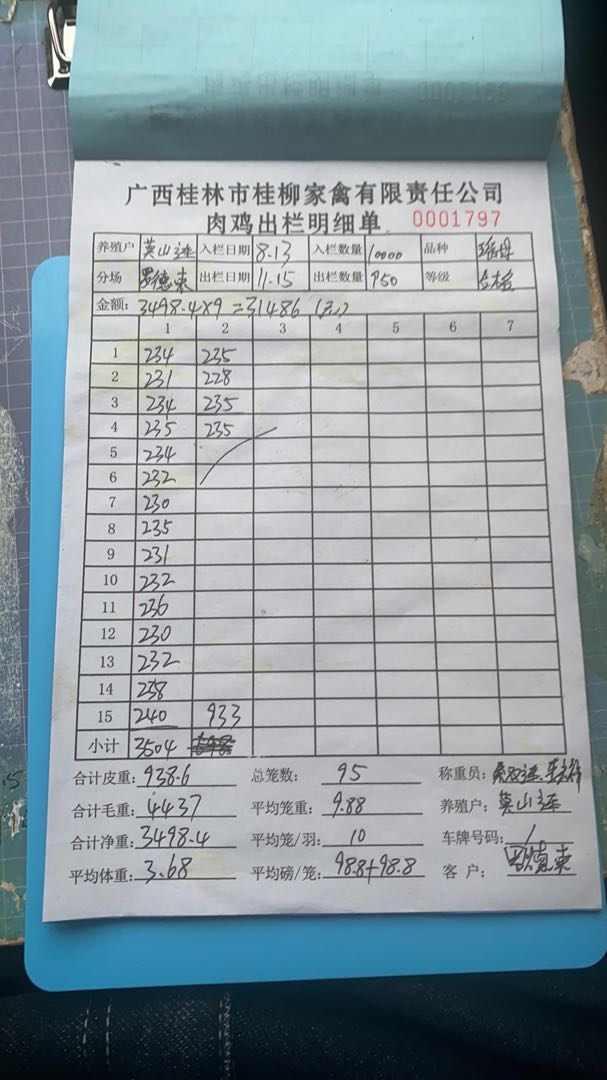 广西桂林市桂柳家禽有限责任公司
肉鸡出栏明细单 0001797
养殖户 莫山连 入栏日期 8.13 入栏数量 10000 品种
分场 罗德东 出栏日期 11.15 出栏数量 950 等级 合格
金额: 3498.4×9=31486 (元)
1 2 3 4 5 6 7
1 234 235
2 231 228
3 234 235
4 235 235
5 234
6 232
7 230
8 235
9 231
10 232
11 236
12 230
13 232
14 238
15 240 933
小计 3504
合计皮重: 938.6 总笼数: 95 称重员:
合计毛重: 4437 平均笼重: 9.88 养殖户: 莫山连
合计净重: 3498.4 平均笼/羽: 10 车牌号码: /
平均体重: 3.68 平均磅/笼: 98.8+98.8 客 户: 罗德东